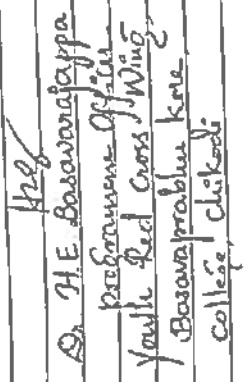 Dr H.E. Basavarajappa
Programme Officer
Youth Red Cross Wing
Basavaprabhu kore
college, chikodi